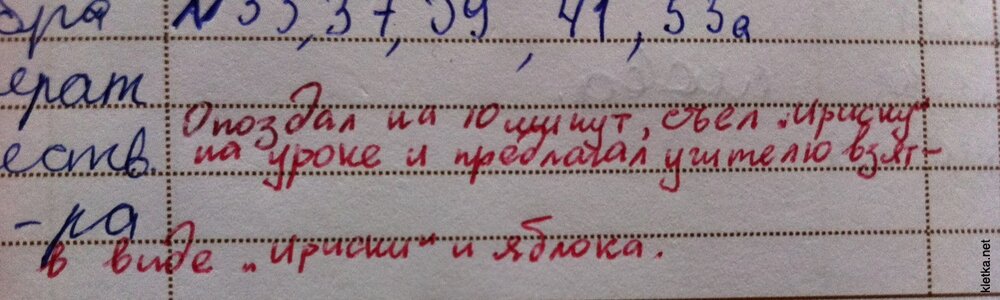 бра №35, 37, 39, 41, 53а
ерат
Опоздал на 10 минут, съел „Ириску“
еств. на уроке и предлагал учителю взят-
-ра
в виде „Ириски“ и яблока.
kletka.net